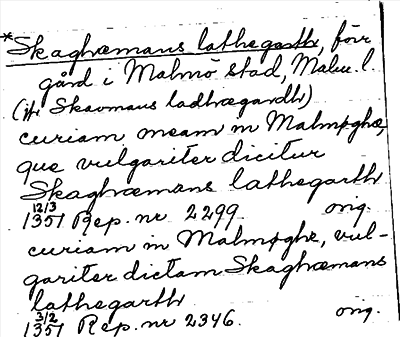 *Skaghæmans lathegarth, förr
gård i Malmö stad, Malm. l.
(jfr Skavmans ladhægardh)
curiam meam in Malmøghæ,
que vulgariter dicitur
Skaghæmans lathegarth
12/3 1351 Rep. nr 2299. orig.
curiam in Malmøghe, vul-
gariter dictam Skaghæmans
lathegarth
3/2 1351 Rep. nr 2346. orig.